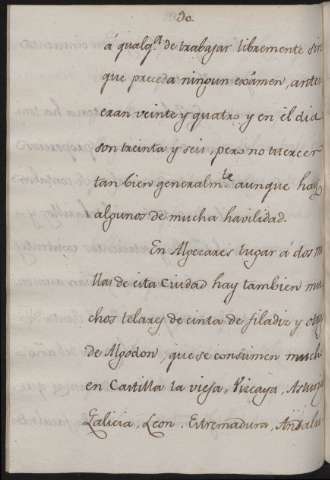 30.
á qualq.ª de trabajar libremente sin
que preceda ningun exâmen, antes
eran veinte y quatro y en el dia
son treinta y seis, pero no tuercen
tan bien generalm.te aunque hay
algunos de mucha havilidad.
En Algezares lugar á dos mi
llas de esta Ciudad hay tambien mu
chos telares de cinta de filadiz y otros
de Algodon, que se consumen mucho
en Castilla la vieja, Vizcaya, Asturias
Galicia, Leon, Estremadura, Andalu